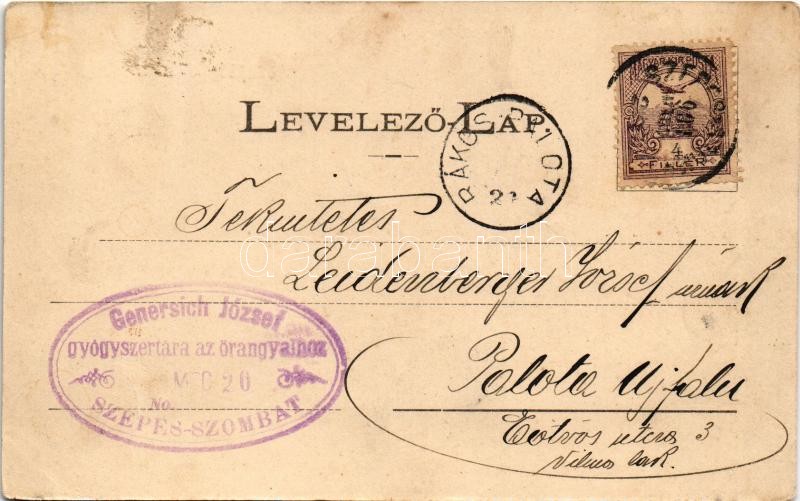 LEVELEZŐ-LAP.
MAGYAR KIR. POSTA
4
FILLÉR
RÁKOS PALOTA
Tekintetes
Leidenberger József úrnak
Palota Ujfalu
Eötvös utcza 3
Vilma lak.
Genersich József
gyógyszertára az őrangyalhoz
No.
SZEPES-SZOMBAT
darabanth